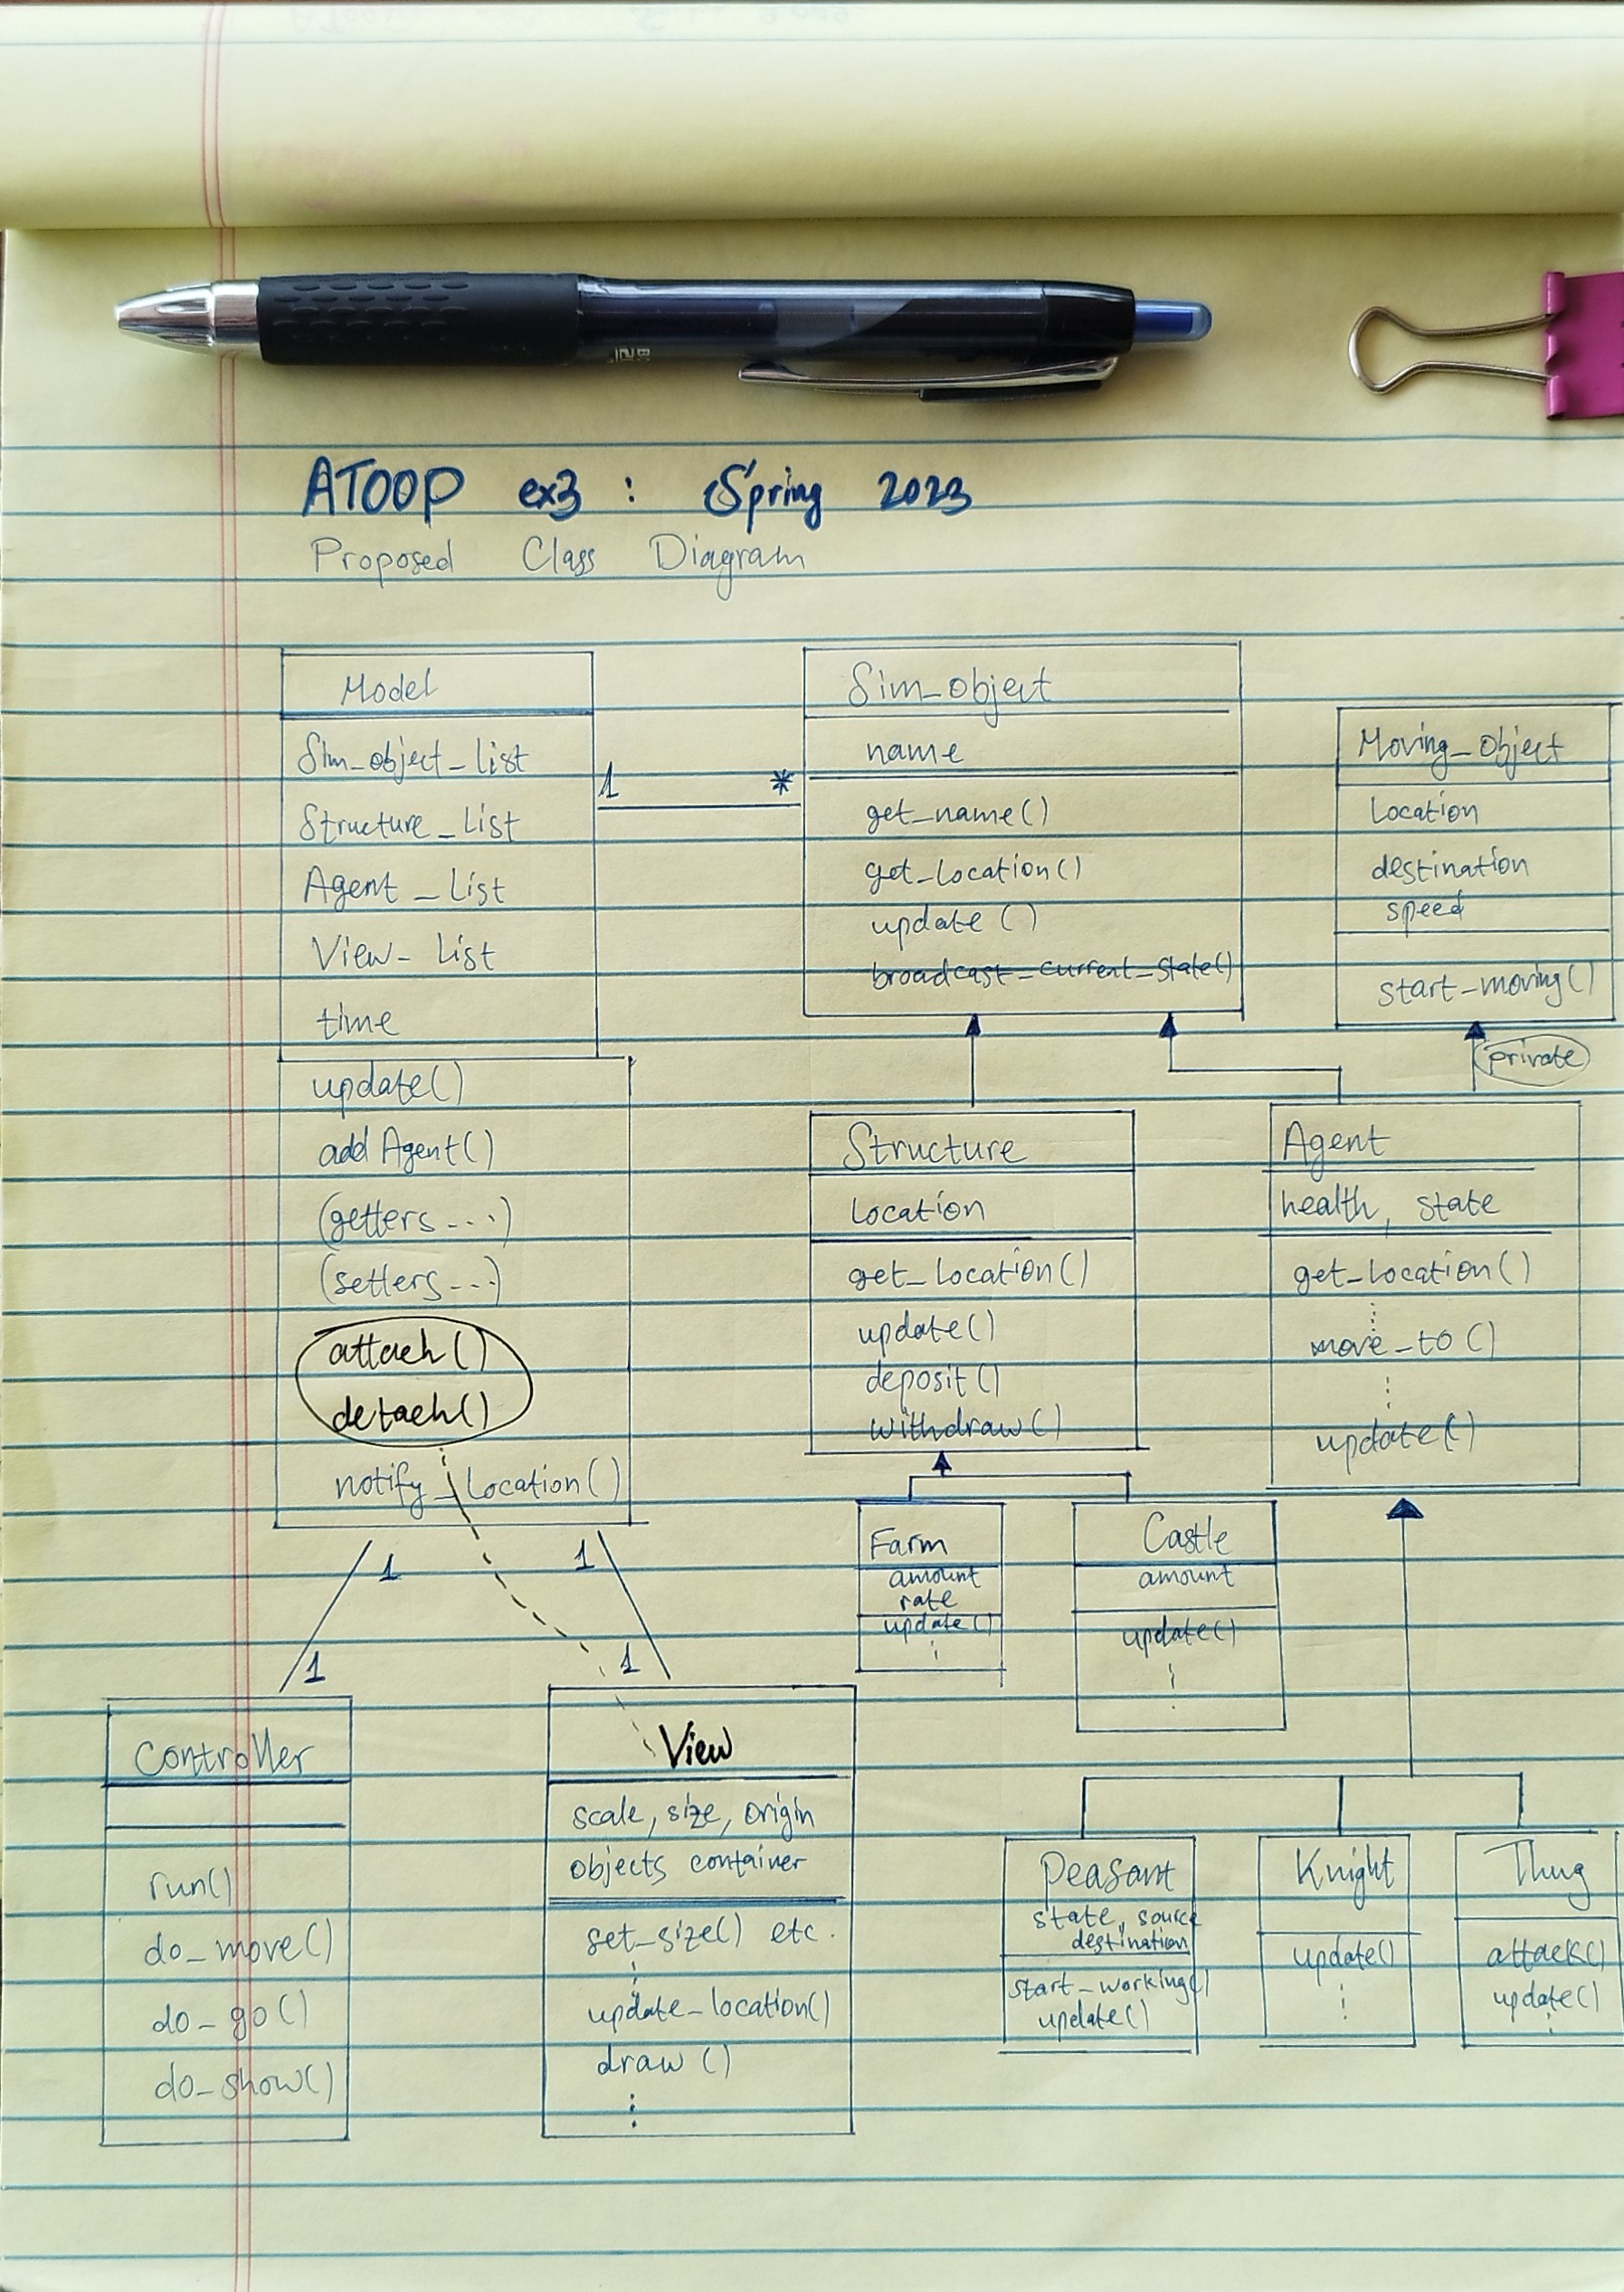 ATOOP ex3 : Spring 2023
Proposed Class Diagram
Model
Sim_object_list
Structure_List
Agent_List
View_List
time
update()
add Agent()
(getters....)
(setters...)
attach()
detach()
notify_Location()
1
*
Sim_object
name
get_name()
get_Location()
update()
broadcast_current_state()
Moving_object
Location
destination
speed
start_moving()
private
Structure
Location
get_Location()
update()
deposit()
withdraw()
Agent
health, state
get_Location()
move_to()
update()
Farm
amount
rate
update()
Castle
amount
update()
1
1
1
1
Controller
run()
do_move()
do_go()
do_show()
View
scale, size, origin
objects container
set_size() etc.
update_location()
draw()
Peasant
state, source
destination
start_working()
update()
Knight
update()
Thug
attack()
update()